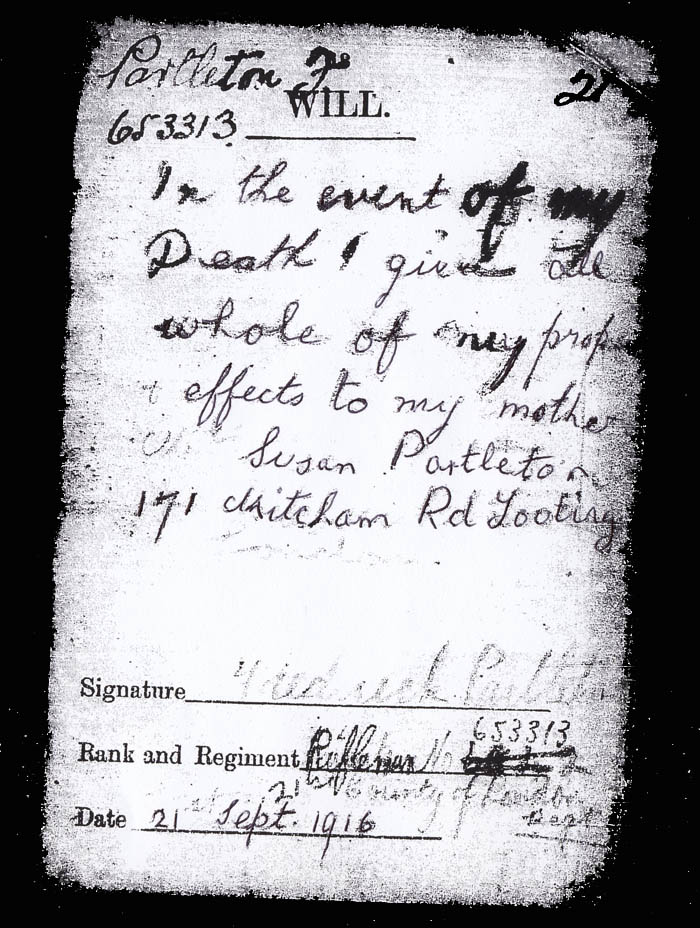 Partleton F
21
WILL.
653313
In the event of my
Death I give the
whole of my prop
effects to my mother
Susan Partleton
171 Mitcham Rd Tooting
Signature Frederick Partleton
653313
Rank and Regiment Rifleman No
21st County of London
Regt
Date 21st Sept. 1916